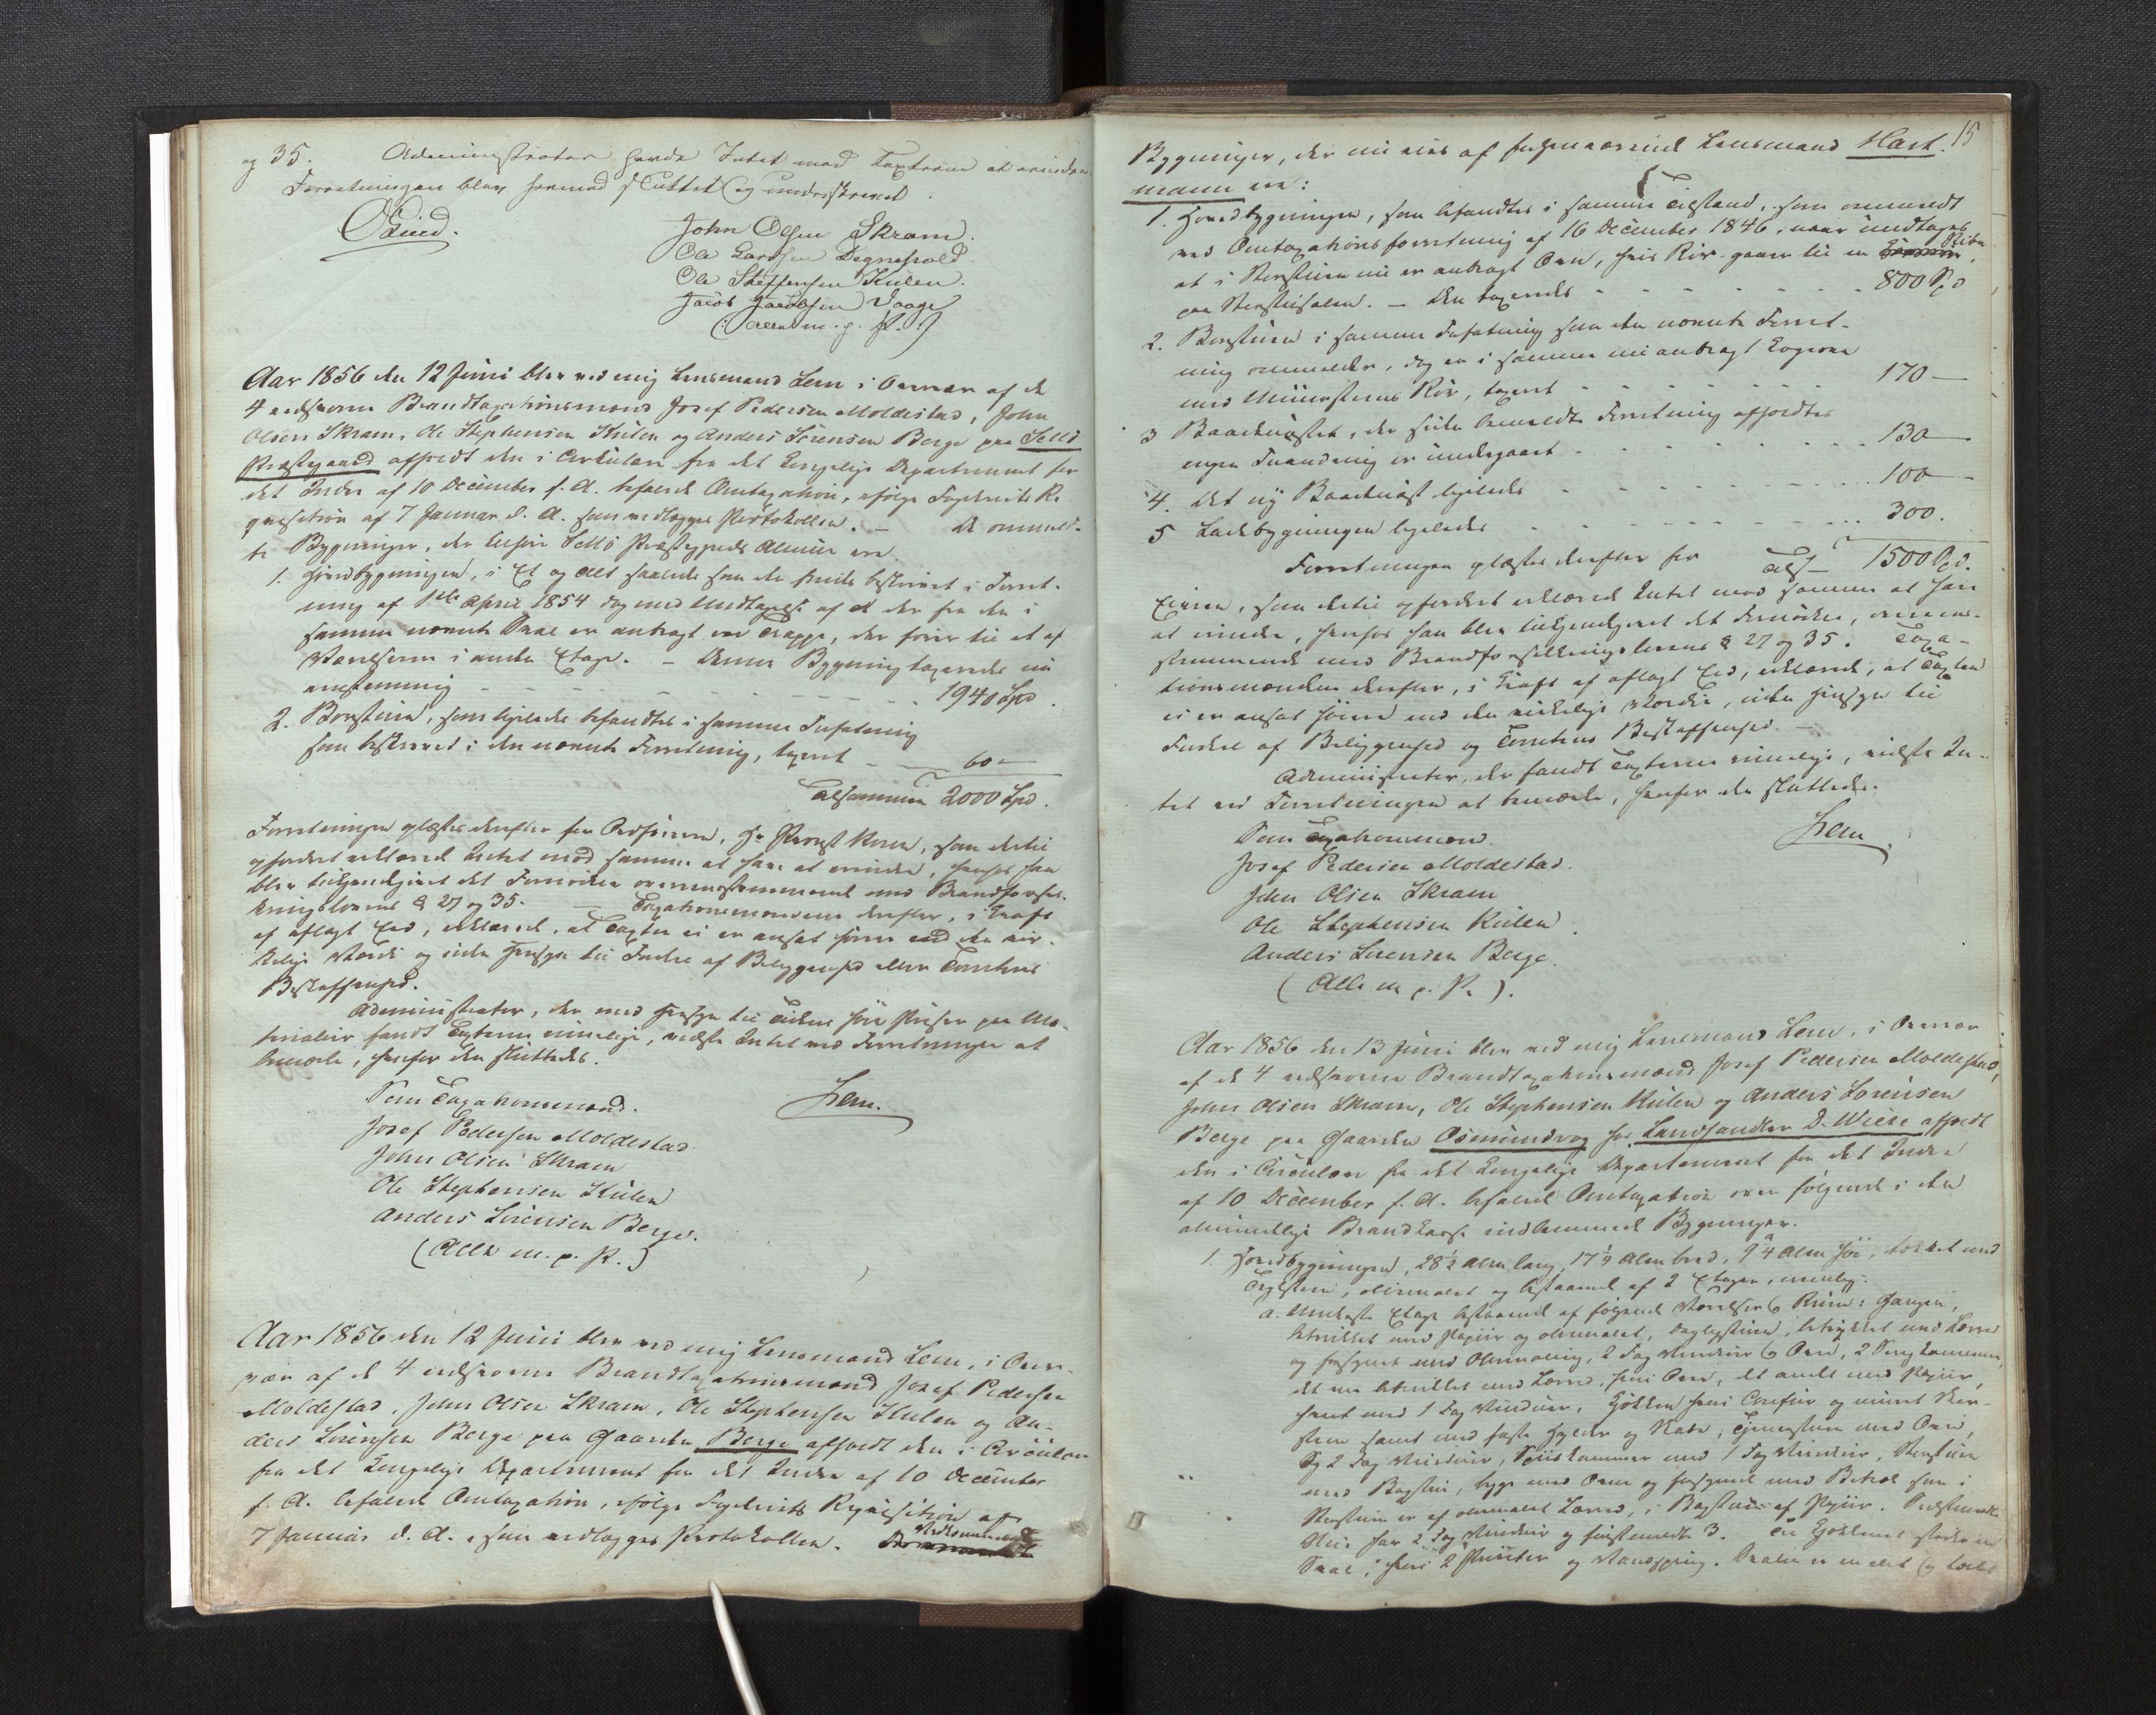 og 35. Administrator havde Intet mod Taxterne at erindre
Forretningen blev hermed sluttet og underskrevet.
John Olsen Skram.
Ole Larssen Degnepold.
Ole Steffensen Hulen.
Jacob Jacobsen Vaage
(: Alle m. p. P. :)
Aar 1856 den 12 Juni blev ved mig Lensmand Lem i Overvær af de
4 edsvorne Brandtaxationsmænd Josef Pedersen Moldestad, John
Olsen Skram, Ole Stephensen Hulen og Anders Sörensen Berge paa Selö
Præstegaard afholdt den i Cirkulære fra det kongelige Departement for
det Indre af 10 December f. A. befalede Omtaxation, ifølge Fogderiets Re
qvisition af 7 Januar d. A. som vedlægges Protokollen. – De ommeld-
te Bygninger, der tilhöre Selö Præstegjelds Almue ere
1. Hovedbygningen, i Et og Alt saaledes som den findes beskrevet i Forret-
ning af 1ste April 1854 dog med Undtagelse af at der fra den i
samme nævnte Sval er anbragt en Trappe, der förer til et af
Værelserne i anden Etage. – Denne Bygning taxeredes nu
enstemmig - - - 1940 Spd.
2. Borgstuen, som ligeledes befandtes i samme Forfatning
som beskrevet i den nævnte Forretning, taxeret - - 60 -
Tilsammen 2000 Spd.
Forretningen oplæstes derefter for Opsidderen, Hr Provst Koren, som dertil
opfordret erklærede Intet mod samme at have at erindre, hvorfor han
blev tilkjendegivet det Fornødne overeensstemmende med Brandforsik-
ringslovens § 27 og 35. – Taxationsmændene derefter, i Kraft
af aflagt Eed, erklærede, at Taxten ei er ansat höiere end den vir-
kelige Værdi og uden Hensyn til Fordel af Beliggenhed eller Tomtens
Beskaffenhed.
Administrator, der med Hensyn til Tidens höie Priser paa Ma-
terialier fandt Taxterne rimelige, vidste Intet ved Forretningen at
bemærke, hvorfor den sluttedes.
Som Taxationsmænd. Lem.
Josef Pedersen Moldestad
John Olsen Skram
Ole Stephensen Hulen
Anders Sörensen Berge.
(Alle m. p. P.)
Aar 1856 den 12 Juni blev ved mig Lensmand Lem, i Over-
vær af de 4 edsvorne Brandtaxationsmænd Josef Pedersen
Moldestad, John Olsen Skram, Ole Stephensen Hulen og An-
ders Sörensen Berge paa Gaarden Berge afholdt den i Cirkulære
fra det kongelige Departement for det Indre af 10 December
f. A. befalede Omtaxation, ifølge Fogderiets Reqvisition af
7 Januar d. A. som vedlægges Protokollen. Vedkommende
15
Bygninger, der nu eies af forhenværende Lensmand Hart-
mann ere:
1. Hovedbygningen, som befandtes i samme Tilstand, som ommeldt
ved Omtaxationsforretning af 16 December 1846, naar undtages
at i Storstuen nu er anbragt Ovn, hvis Rör gaaer til en Pibe
paa Storstusalen. – Den taxeredes - - - 800 Spd
2. Borgstuen i samme Forfatning som den nævnte Forret-
ning ommelder, dog er i samme nu anbragt Kogeovn
med Muursteens Rör, taxeret - - - 170 -
3 Baadnöstet, der siden bemeldte Forretning afholdtes
ingen Forandring er undergaaet - - - 130
4. Det ny Baadnöst ligeledes - - - 100
5 Ladebygningen ligeledes - - - 300.
Forretningen oplæstes derefter for Tils. 1500 Spd.
Eieren, som dertil opfordret erklærede Intet mod samme at have
at erindre, hvorfor han blev tilkjendegivet det Fornødne, overeens-
stemmende med Brandforsikringslovens § 27 og 35. Taxa-
tionsmændene derefter, i Kraft af aflagt Eed, erklærede, at Taxten
ei er ansat höiere end den virkelige Værdi, uden Hensyn til
Fordel af Beliggenhed og Tomtens Beskaffenhed. –
Administrator, der fandt Taxterne rimelige, vidste In-
tet ved Forretningen at bemærke, hvorfor den sluttedes.
Som Taxationsmænd. Lem.
Josef Pedersen Moldestad.
John Olsen Skram
Ole Stephensen Hulen.
Anders Sörensen Berge.
(Alle m. p. P.).
Aar 1856 den 13 Juni blev ved mig Lensmand Lem, i Overvær
af de 4 edsvorne Brandtaxationsmænd Josef Pedersen Moldestad,
John Olsen Skram, Ole Stephensen Hulen og Anders Sörensen
Berge paa Gaarden Osmundsvog hos Landhandler D. Wiese afholdt
den i Circulære fra det kongelige Departement for det Indre
af 10 December f. A. befalede Omtaxation over følgende i den
almindelige Brandkasse indlemmede Bygninger.
1. Hovedbygningen, 28½ Alen lang, 17½ Alen bred, 9¼ Alen höi, tækket med
Teglsteen, oliemalet og bestaaende af 2 Etager, nemlig:
a. Underste Etage bestaaende af følgende Værelser & Rum: Gangen,
betrukket med Papiir og oliemalet, Dagligstuen, betrukket med Lærred
og forsynet med Oliemaling, 2 Fag Vinduer & Ovn, 2 Sengkammere,
det ene betrukket med Lærred, hvori Ovn, det andet med Papiir,
hvert med 1 Fag Vinduer, Kjökken hvori Comfur og muret Skor-
steen samt med faste Hylder og Skabe, Pigestuen med Ovn,
og 2 Fag Vinduer, Spiiskammer med 1 Fag Vinduer, Storstue
med Bagstue, begge med Ovne og forsynede med Betræk som i
Storstuen er af oliemalet Lærred, i Bagstuen af Papiir. Sidstnævnte
Stue har 2 Fag Vinduer og förstnævnte 3. Til Kjökkenet støder en
Sval, hvori 2 og Vandspring. Svalen er malet og tækket